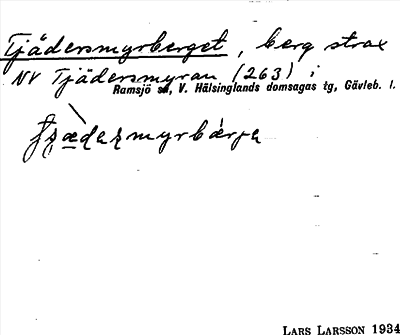 Tjädersmyrberget, berg strax
NV Tjädersmyran (263) i
Ramsjö sn, V. Hälsinglands domsagas tg, Gävleb. l.
LARS LARSSON 1934